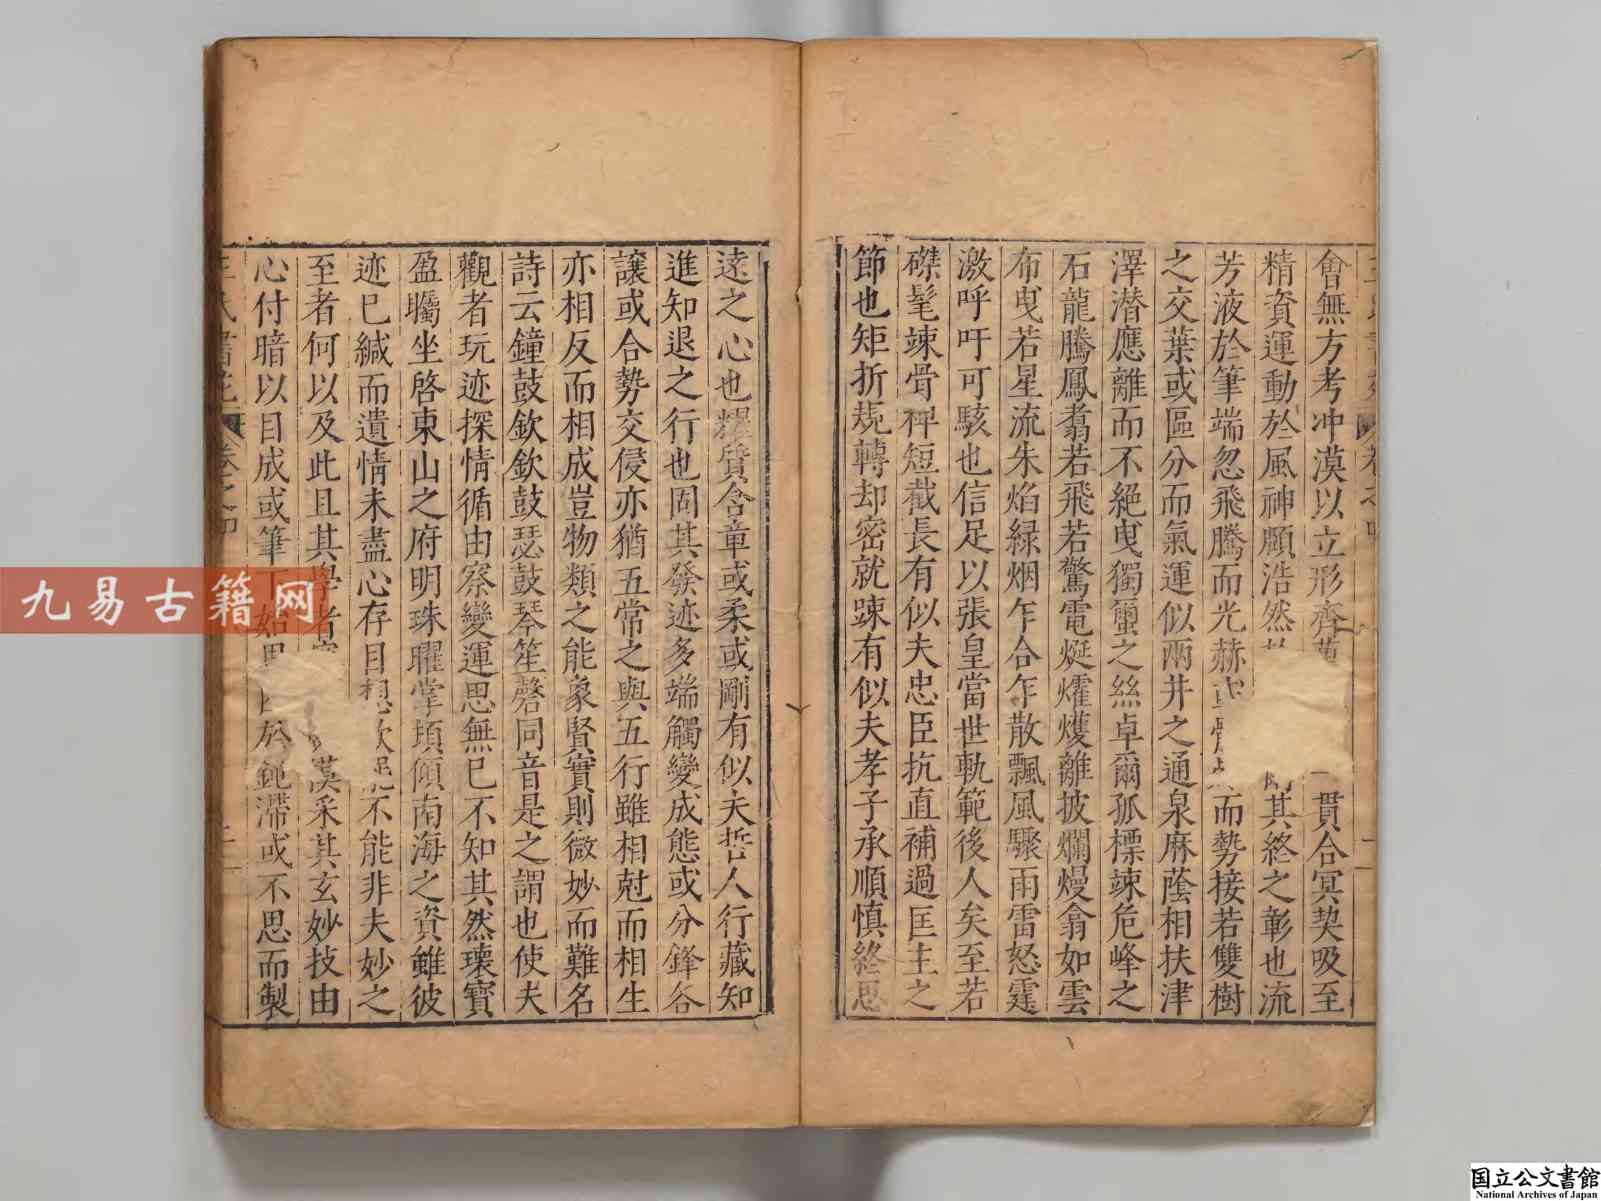 會無方考冲漠以立形齊黃 貫合冥契吸至
精資運動於風神頤浩然 其終之彰也流
芳液於筆端忽飛騰而光赫 而勢接若雙樹
之交葉或區分而氣運似兩井之通泉麻蔭相扶津
澤潜應離而不絕曳獨蠒之絲卓爾孤標竦危峰之
石龍騰鳳翥若飛若驚電烻爌爜離披爛熳翕如雲
布曳若星流朱焰綠烟乍合乍散飄風驟雨雷怒霆
激呼吁可駭也信足以張皇當世軌範後人矣至若
磔髦竦骨裨短截長有似夫忠臣抗直補過匡主之
節也矩折規轉却密就踈有似夫孝子承順慎終思
遠之心也耀質含章或柔或剛有似夫哲人行藏知
進知退之行也固其發迹多端觸變成態或分鋒各
讓或合勢交侵亦猶五常之與五行雖相尅而相生
亦相反而相成豈物類之能象賢實則微妙而難名
詩云鐘鼓欽欽鼓瑟鼓琴笙磬同音是之謂也使夫
觀者玩迹探情循由察變運思無已不知其然瓌寶
盈矚坐啓東山之府明珠曜掌頃傾南海之資雖彼
迹已緘而遺情未盡心存目想欲 不能非夫妙之
至者何以及此且其學者 漢采其玄妙技由
心付暗以目成或筆下始思 於鈍滯或不思而製
王氏書苑 卷之四
九易古籍网
国立公文書館
National Archives of Japan